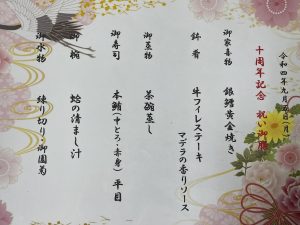 令和四年九月五日(月)
十周年記念 祝い御膳
御家喜物 銀鱈黄金焼き
鉢肴 牛フィレステーキ
マデラの香りソース
御蒸物 茶碗蒸し
御寿司 本鮪(中とろ・赤身) 平目
御椀 蛤の清まし汁
御水物 練り切り・御園菊